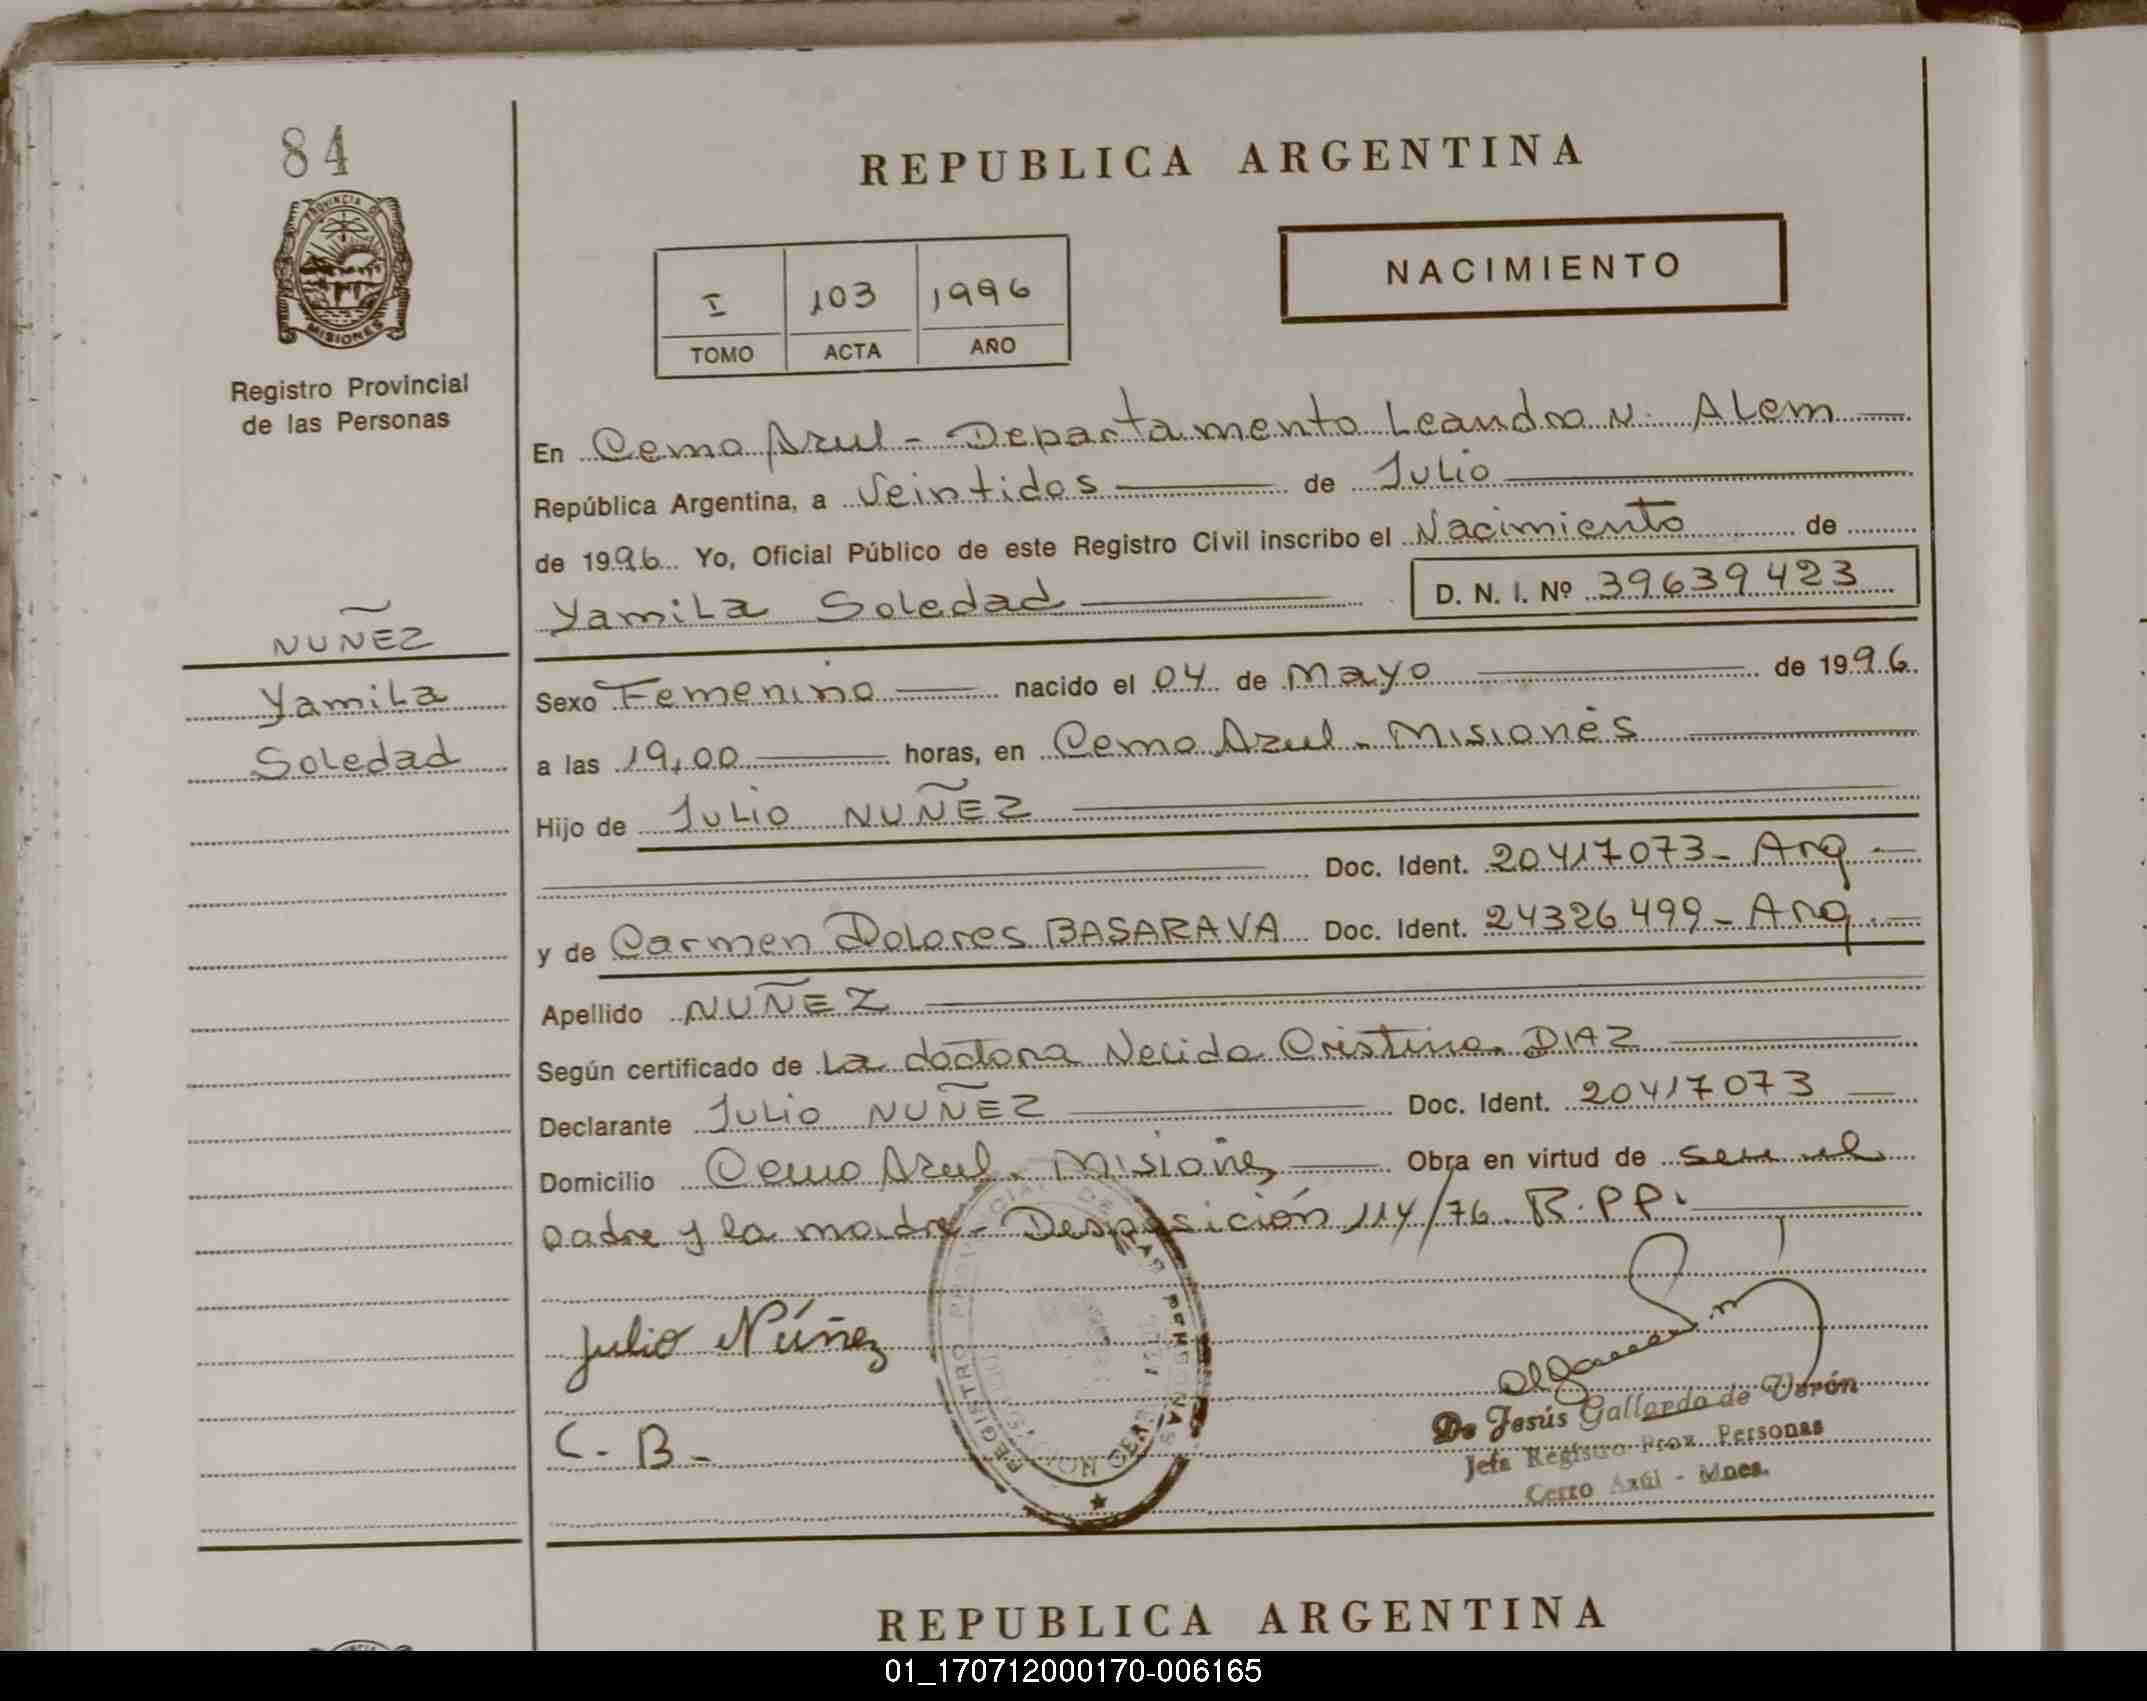 84
REPUBLICA ARGENTINA
PROVINCIA DE
MISIONES
Registro Provincial
de las Personas
I 103 1996
TOMO ACTA AÑO
NACIMIENTO
En Cerro Azul - Departamento Leandro N. Alem
República Argentina, a Veintidos de Julio
de 1996 Yo, Oficial Público de este Registro Civil inscribo el Nacimiento de
Yamila Soledad D. N. I. Nº 39639423
NUÑEZ
Yamila
Soledad
Sexo Femenino nacido el 04 de Mayo de 1996.
a las 19,00 horas, en Cerro Azul - Misiones
Hijo de Julio NUÑEZ
Doc. Ident. 20417073 - Arg -
y de Carmen Dolores BASARAVA Doc. Ident. 24326499 - Arg. -
Apellido NUÑEZ
Según certificado de La doctora Cristina DIAZ
Declarante Julio NUÑEZ Doc. Ident. 20417073
Domicilio Cerro Azul - Misiones Obra en virtud de ser el
padre y la madre - Desposición 114/76 R.PP.
Julio Núñez
C. B -
REGISTRO DE LAS PERSONAS
De Jesús Gallardo de Verón
Jefa Registro Prov. Personas
Cerro Azúl - Mnes.
REPUBLICA ARGENTINA
01_170712000170-006165